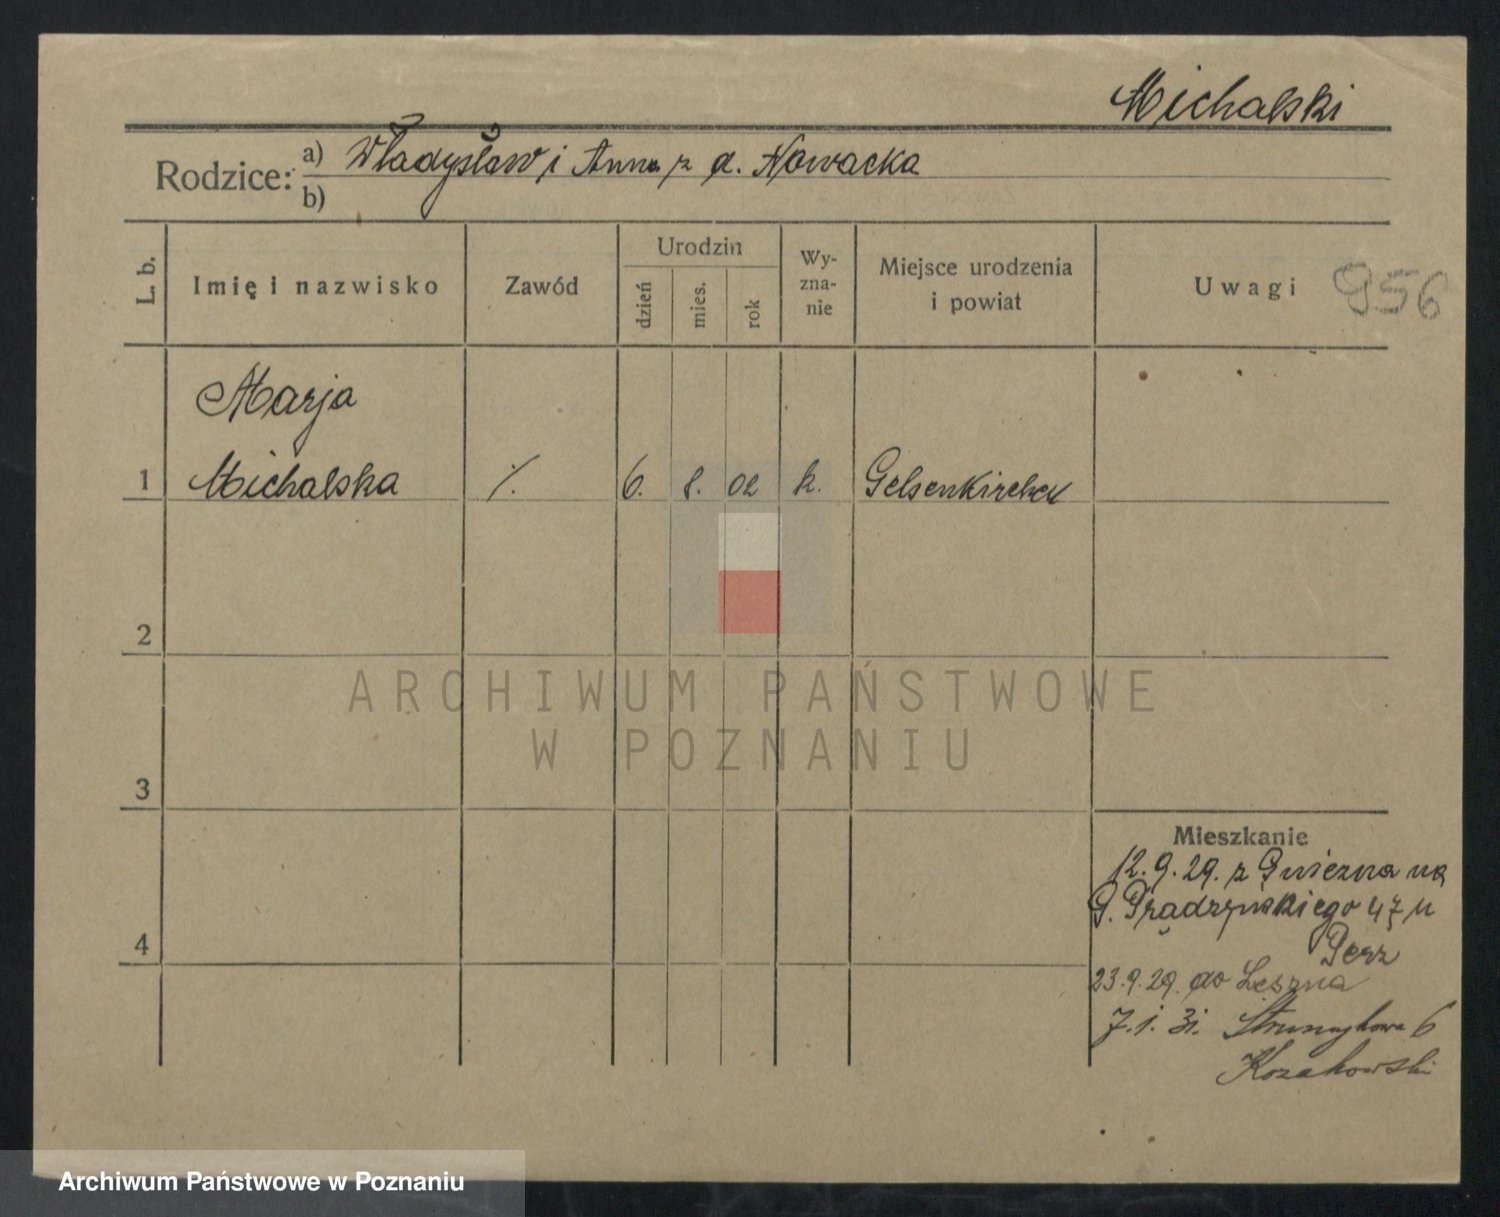 Michalski
Rodzice: a) Władysław i Anna z d. Nowacka
b)
L. b.
Imię i nazwisko
Zawód
Urodzin
dzień
mies.
rok
Wy-
zna-
nie
Miejsce urodzenia
i powiat
Uwagi
956
Marja
1 Michalska ·/. 6. 8. 02 k. Gelsenkirchen
2
ARCHIWUM PAŃSTWOWE
W POZNANIU
3
Mieszkanie
12.9.29. z Gniezna na
G. Prądzyńskiego 47 u
4
Perz
23.9.29. do Leszna
7.1.31. Strumykowa 6
Kozakowski
Archiwum Państwowe w Poznaniu